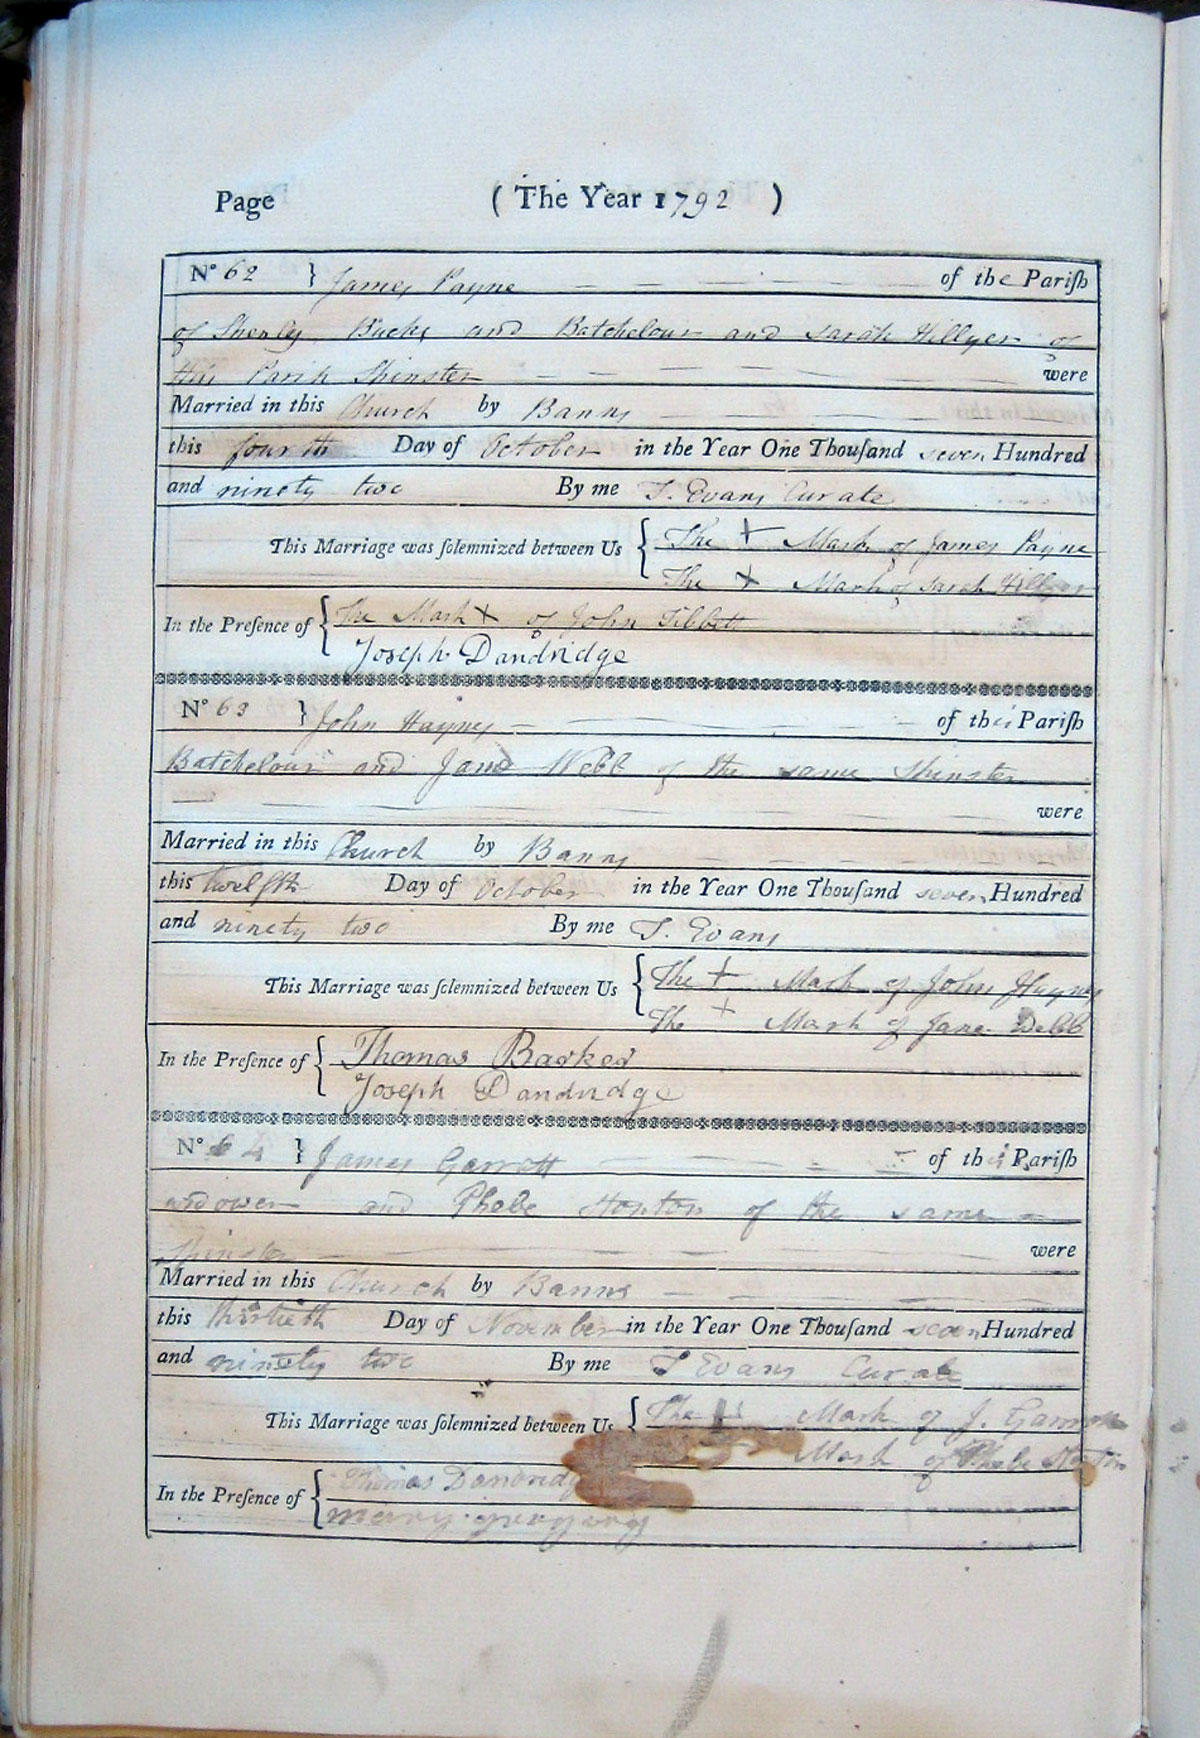 Page (The Year 1792)
No 62 } James Payne of the Pariſh
of Shenly Bucks and Batchelour and Sarah Hillyer of
this Parish Spinster were
Married in this Church by Banns
this fourth Day of October in the Year One Thouſand seven Hundred
and ninety two By me T. Evans Curate
This Marriage was ſolemnized between Us { The X Mark of James Payne
The X Mark of Sarah Hillyer
In the Preſence of { The Mark X of John Tibbett
Joseph Dandridge
No 63 } John Haynes of this Pariſh
Batchelour and Jane Webb of the same Spinster
were
Married in this Church by Banns
this twelfth Day of October in the Year One Thouſand seven Hundred
and ninety two By me T. Evans
This Marriage was ſolemnized between Us { The + Mark of John Haynes
The + Mark of Jane Webb
In the Preſence of { Thomas Barker
Joseph Dandridge
No 64 } James Garrett of this Pariſh
widower and Phebe Horton of the same
Spinster were
Married in this Church by Banns
this thirtieth Day of November in the Year One Thouſand seven Hundred
and ninety two By me T Evans Curate
This Marriage was ſolemnized between Us { The Mark of J. Garrett
Mark of Phebe Horton
In the Preſence of { Thomas Dandridge